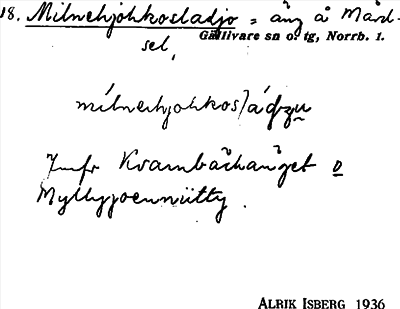 18. Milnehjohkosladjo = äng å Mård-
sel,
Gällivare sn o. tg, Norrb. 1.
mílnehjohkos/ádʒu
Jmfr Kvarnbäckänget o
Myllyjoenniitty.
ALRIK ISBERG 1936